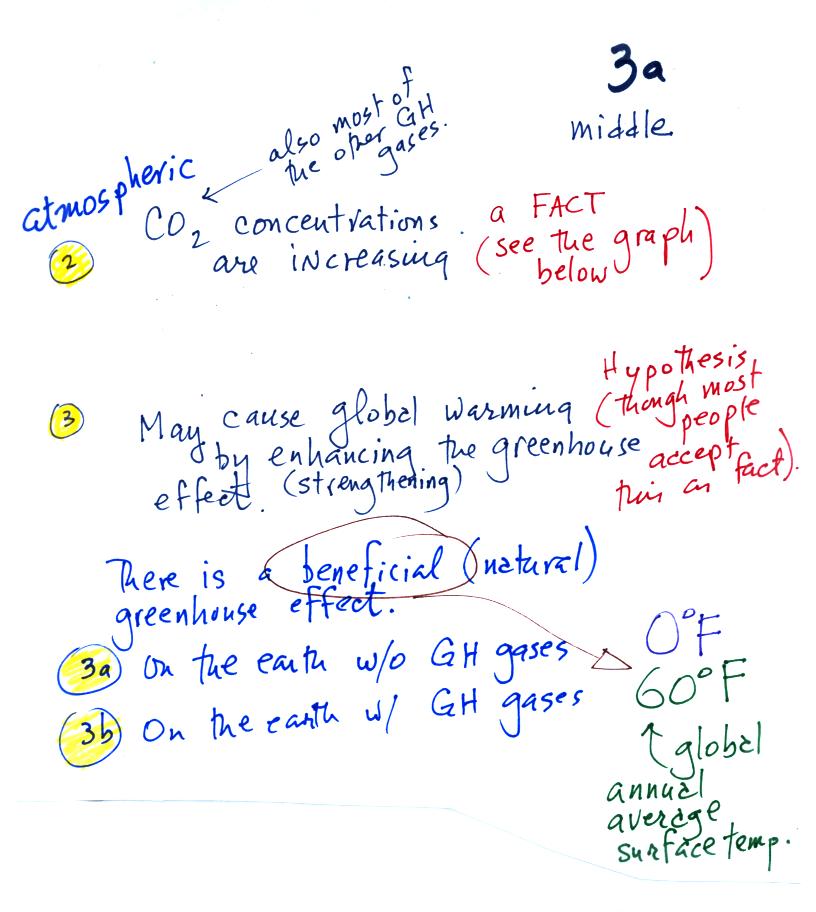 3a
middle
also most of
the other GH
gases.
atmospheric
CO2 concentrations
are increasing
2
a FACT
(see the graph
below)
3
May cause global warming
by enhancing the greenhouse
effect. (strengthening)
Hypothesis
(though most
people
accept
this as fact).
There is a beneficial (natural)
greenhouse effect.
3a On the earth w/o GH gases 0°F
3b On the earth w/ GH gases 60°F
global
annual
average
surface temp.